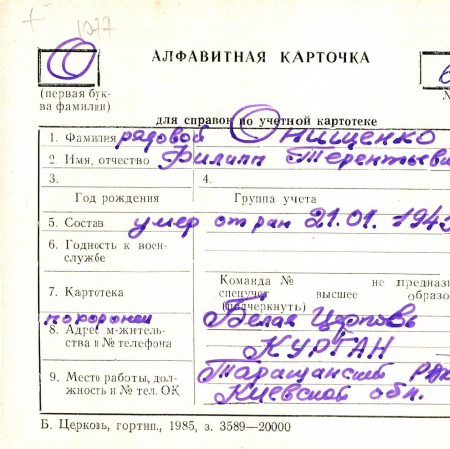 1077
АЛФАВИТНАЯ КАРТОЧКА
О
(первая бук-
ва фамилии)
для справок по учетной картотеке
1. Фамилия рядовой Онищенко
2. Имя, отчество Филипп Терентьеви
3. 4.
Год рождения Группа учета
5. Состав умер от ран 21.01.194
6. Годность к воен-
службе
7. Картотека
Команда № не предназ
спецучет высшее образо
(подчеркнуть)
похоронен Белая Церковь
8. Адрес м-житель-
ства и № телефона
КУРГАН
Таращанский
9. Место работы, дол-
жность и № тел. ОК
Киевской обл.
Б. Церковь, гортип., 1985, з. 3589—20000